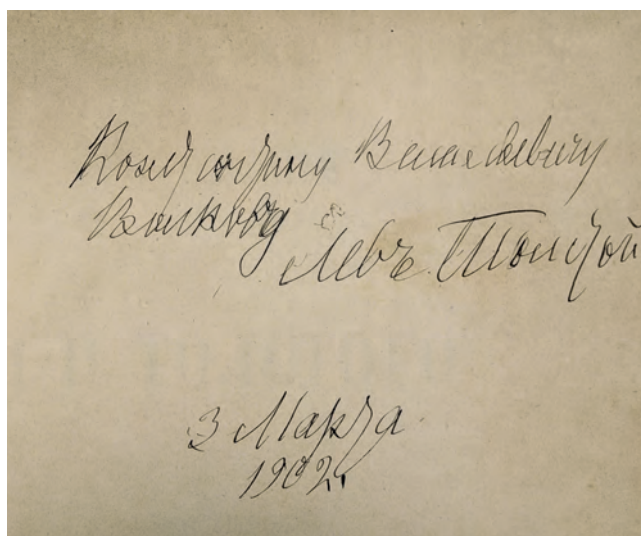 Константину Васильевичу
Волкову
Левъ Толстой
3 Марта
1902